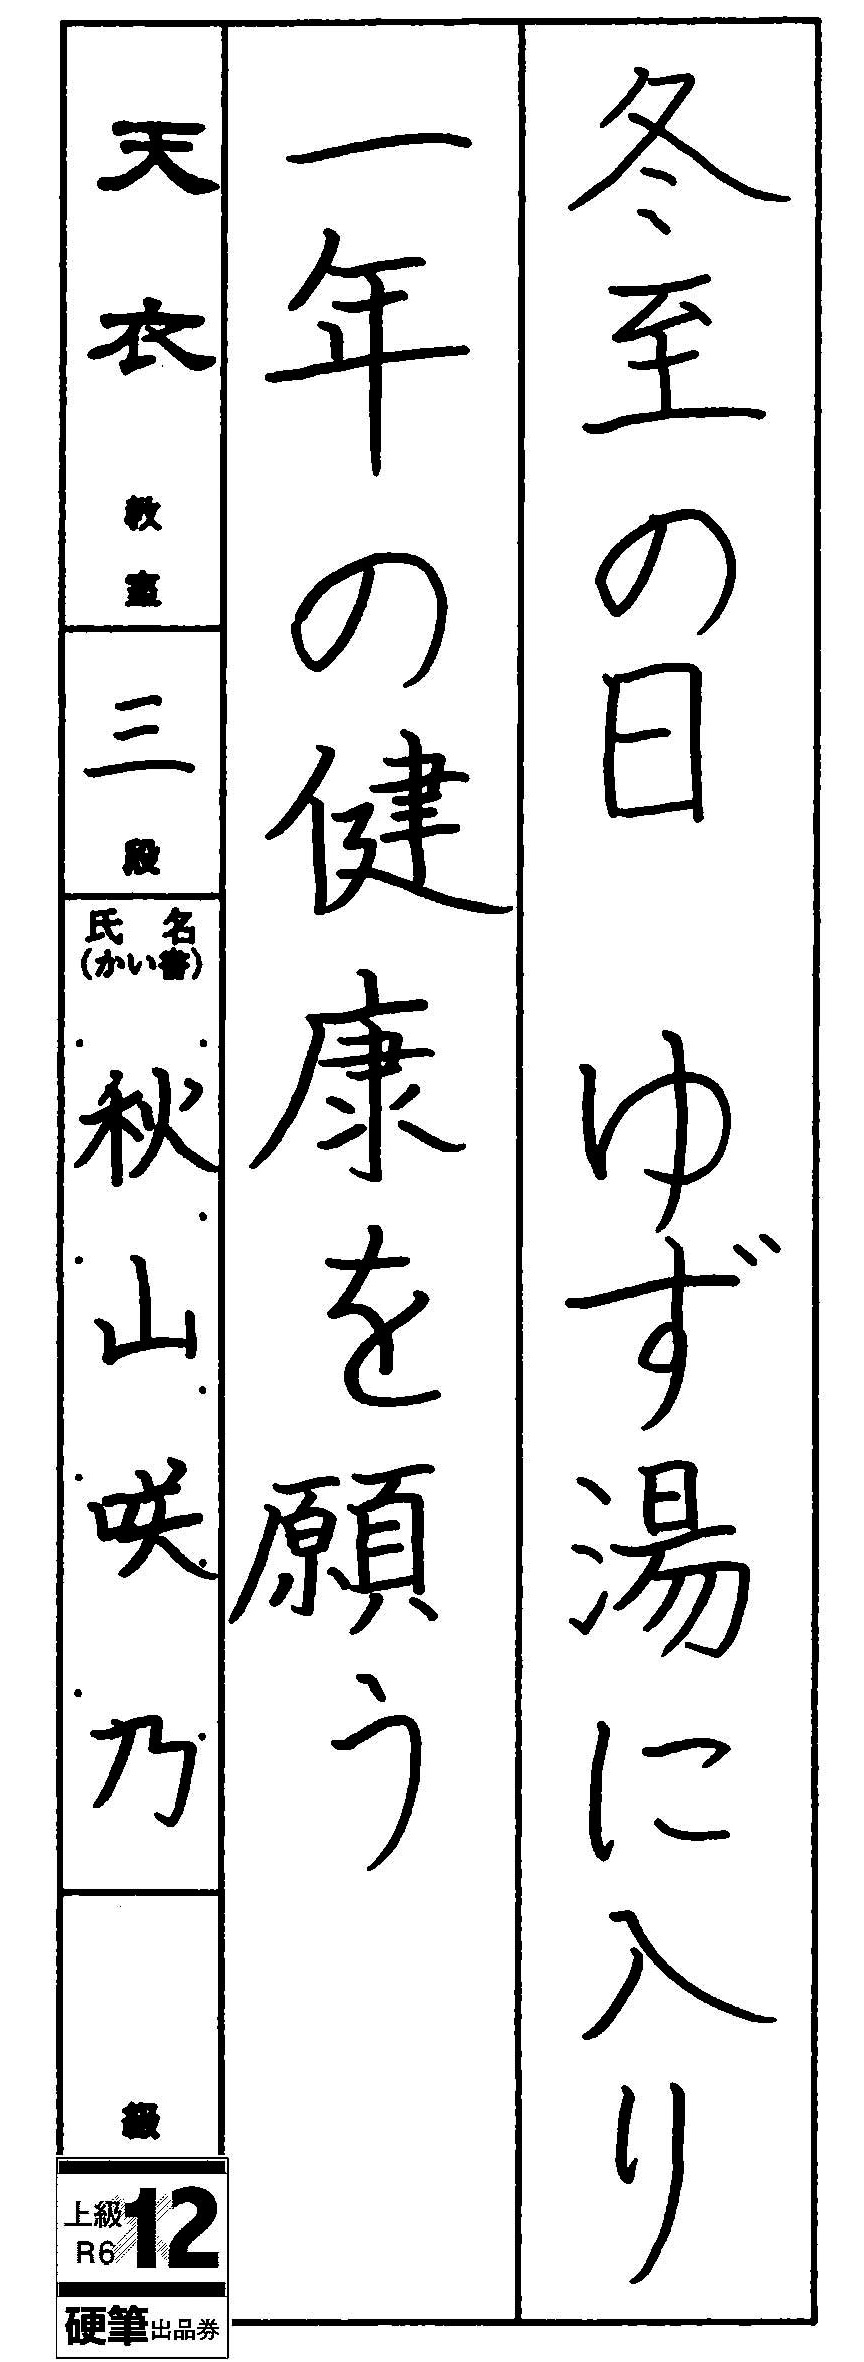 冬至の日　ゆず湯に入り
一年の健康を願う
天衣教室
三段
氏名
(かい書)
秋山咲乃
級
上級
R6
12
硬筆出品券